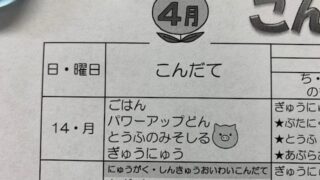 4月
こん
日・曜日
こんだて
ち・
の
14・月
ごはん
パワーアップどん
とうふのみそしる
ぎゅうにゅう
ぎゅうにゅ
★ぶたにく
★とうふ
★あぶら
にゅうがく・しんきゅうおいわいこんだて